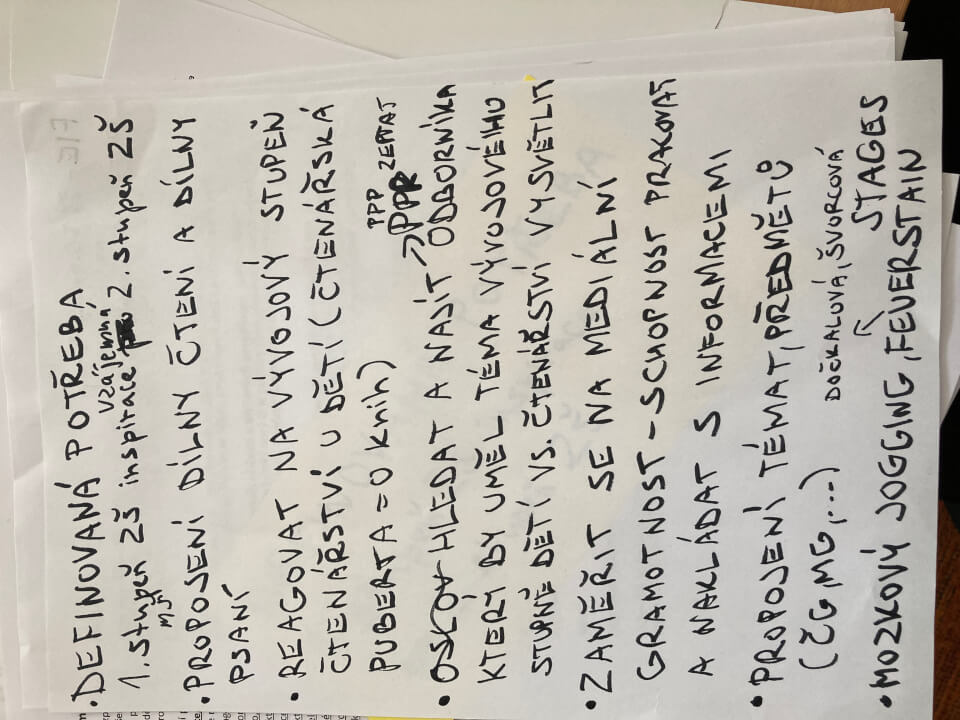 • DEFINOVANÁ POTŘEBA
vzájemná
1. stupeň ZŠ inspirace 2. stupeň ZŠ
MJN
• PROPOJENÍ DÍLNY ČTENÍ A DÍLNY
PSANÍ
• REAGOVAT NA VÝVOJOVÝ STUPEŇ
ČTENÁŘSTVÍ U DĚTÍ (ČTENÁŘSKÁ
PUBERTA = 0 knih)
PPP ZEPTAT
→ PPP
• HLEDAT A NAJÍT ODBORNÍKA
KTERÝ BY UMĚL TÉMA VÝVOJOVÉHO
STUPNĚ DĚTÍ VS. ČTENÁŘSTVÍ VYSVĚTLIT
• ZAMĚŘIT SE NA MEDIÁLNÍ
GRAMOTNOST - SCHOPNOST PRACOVAT
A NAKLÁDAT S INFORMACEMI
• PROPOJENÍ TÉMAT, PŘEDMĚTŮ
(ČG MG, ...)
DOČKALOVÁ, ŠVORCOVÁ
STAGES
• MOZKOVÝ JOGGING, FEUERSTAIN